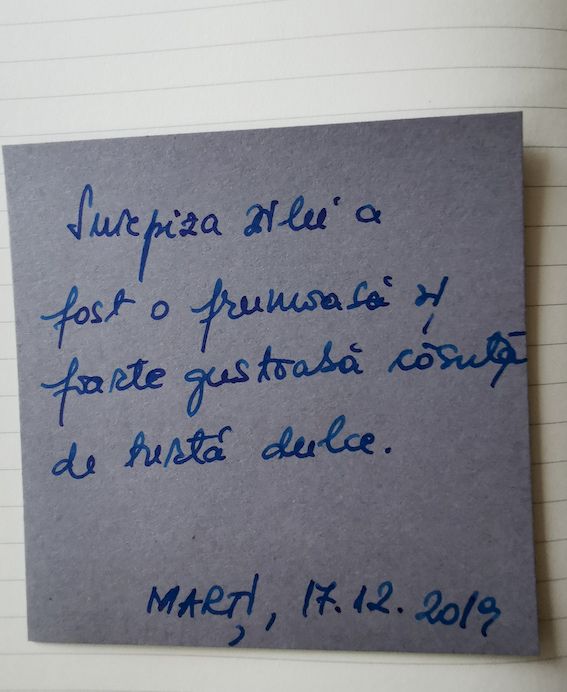 Surpiza zilei a
fost o frumoasă și
foarte gustoasă căsuță
de turtă dulce.
MARȚI, 17.12.2019